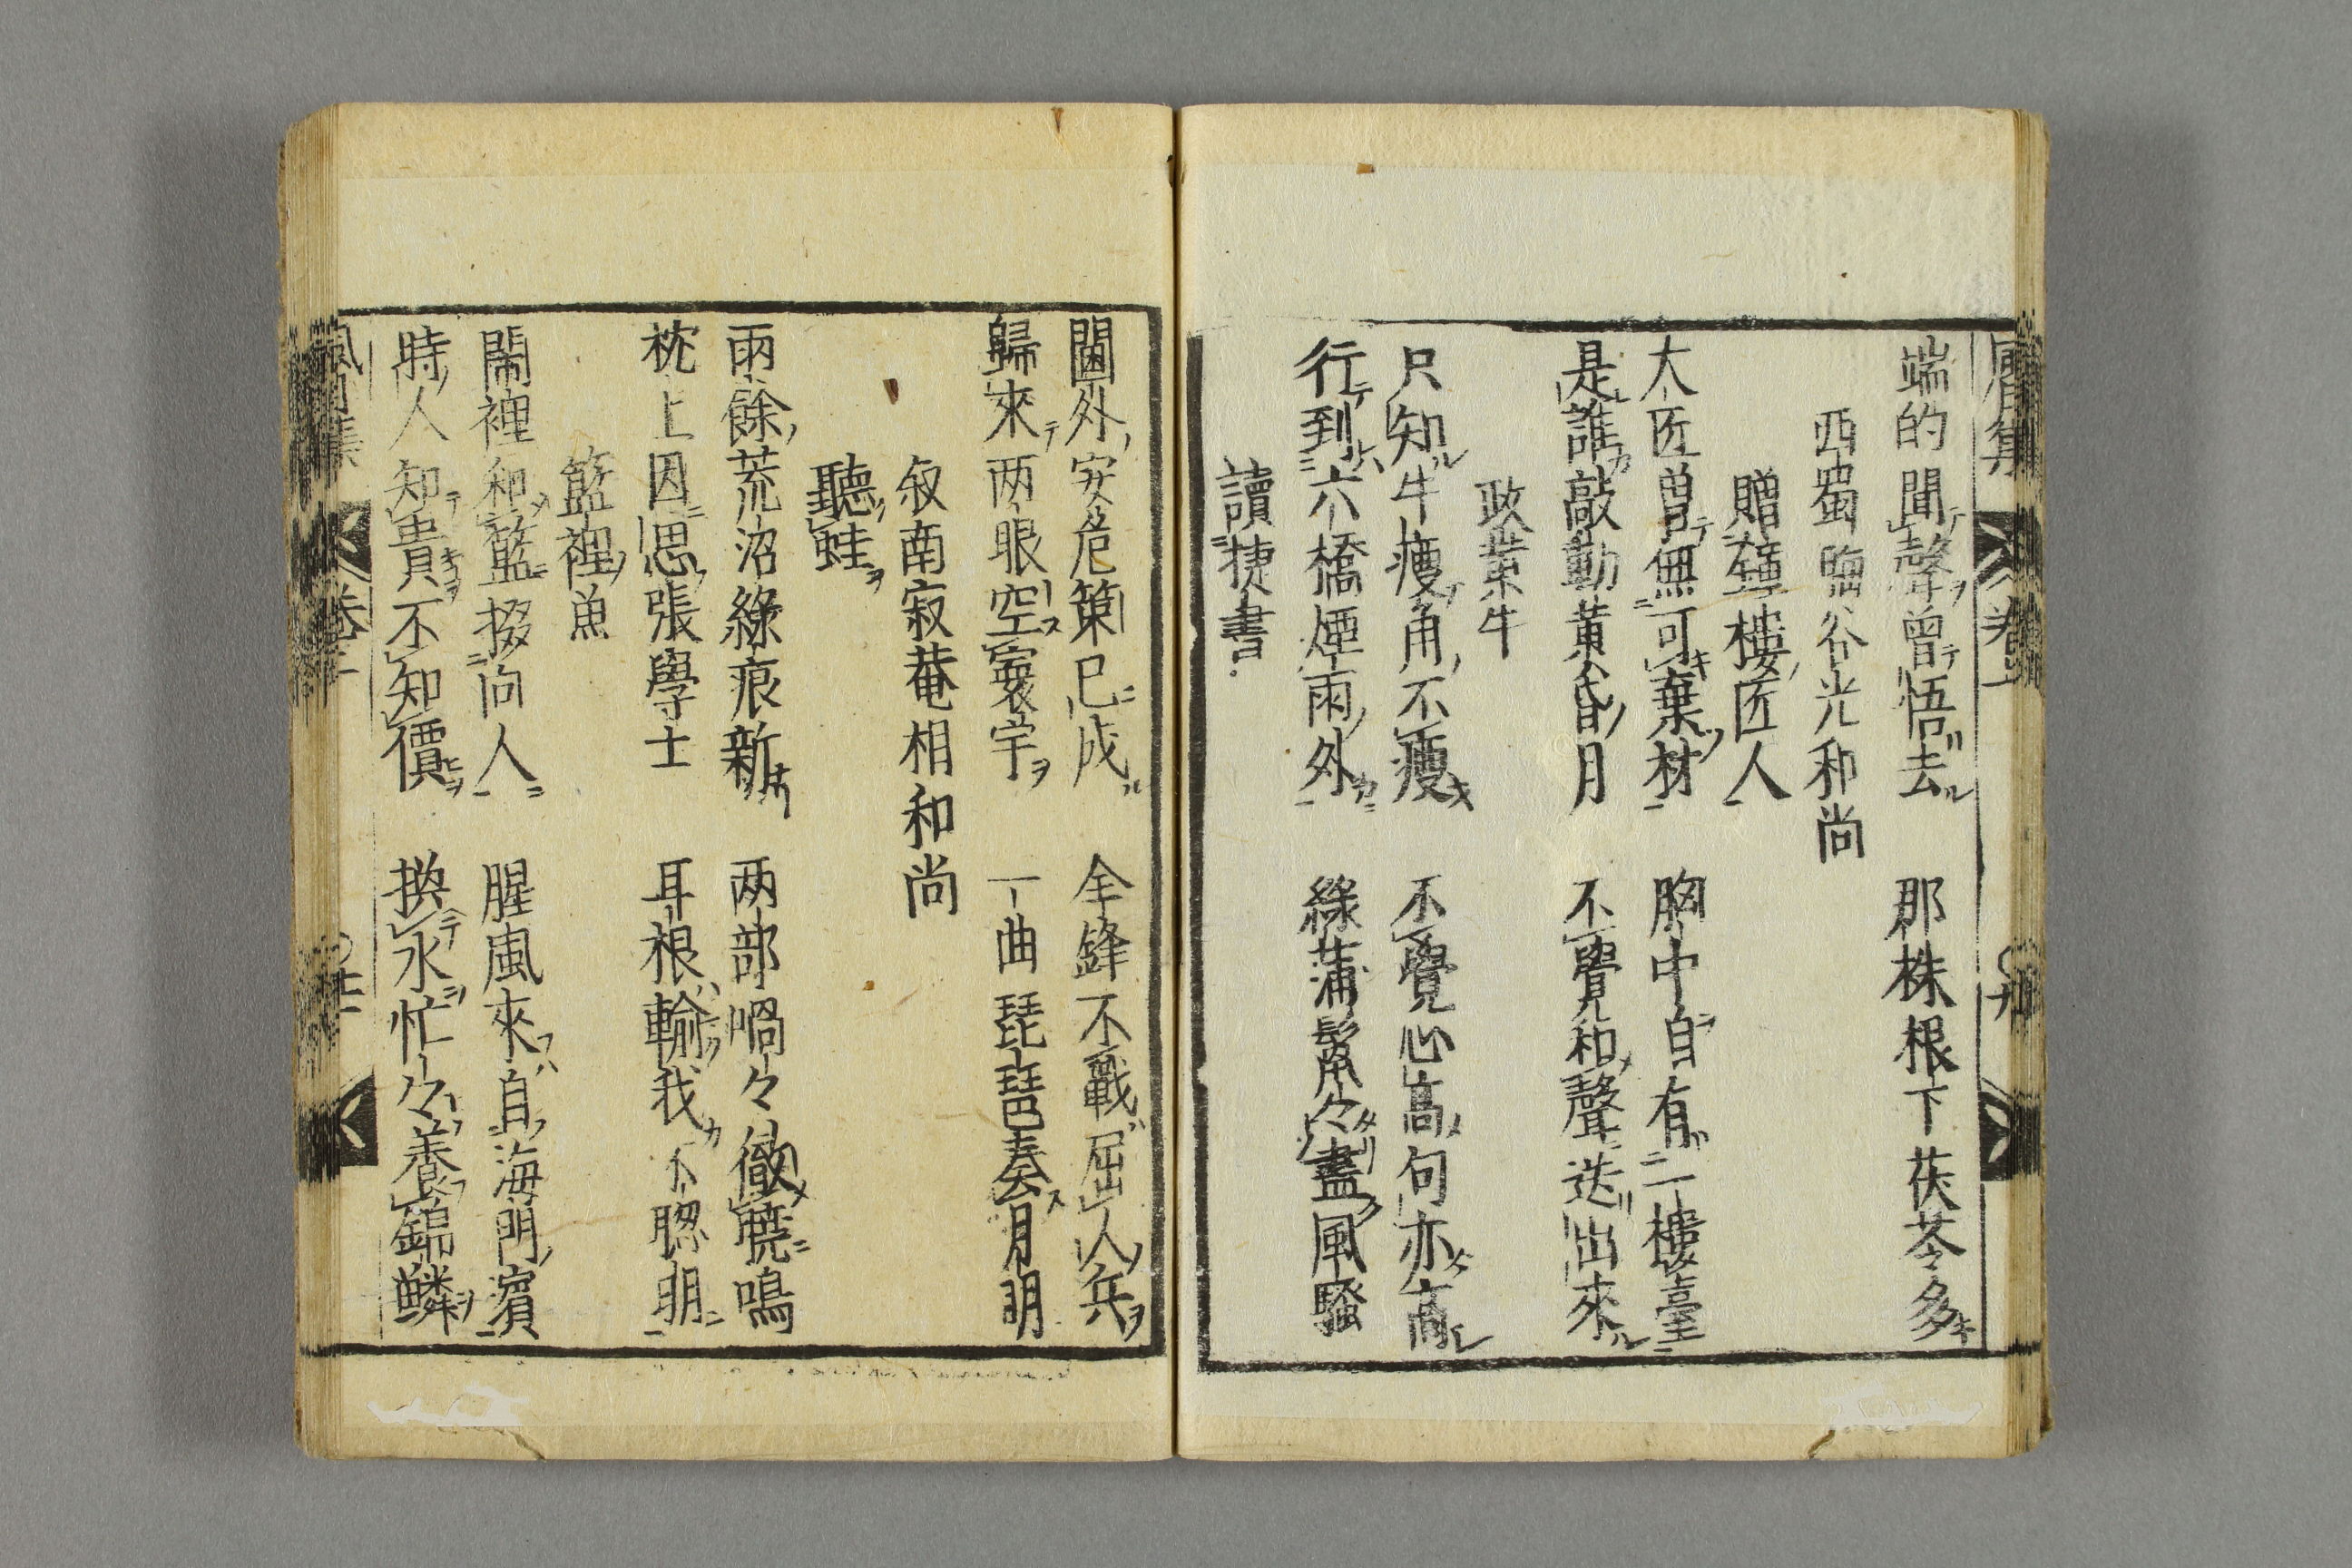 端的聞聲曾悟去　那株根下茯苓多
西蜀臨谷光和尚
贈鐘樓匠人
大匠曽無可棄材　胸中自有一樓臺
是誰敲動黄昏月　不覺和聲送出來
政黄牛
只知牛瘦角不瘦　不覺心高句亦高
行到六橋煙雨外　綠蒲鬙々盡風騷
讀捷書
閫外安危策已成　全鋒不戰屈人兵
歸來两眼空寰宇　一曲琵琶奏月明
叙南寂菴相和尚
聽蛙
雨餘荒沼綠痕新　两部喎々徹曉鳴
枕上因思張學士　耳根輸我不聰明
籃裡魚
閙裡和籃掇向人　腥風來自海門濱
時人知貴不知價　換水忙々養錦鱗